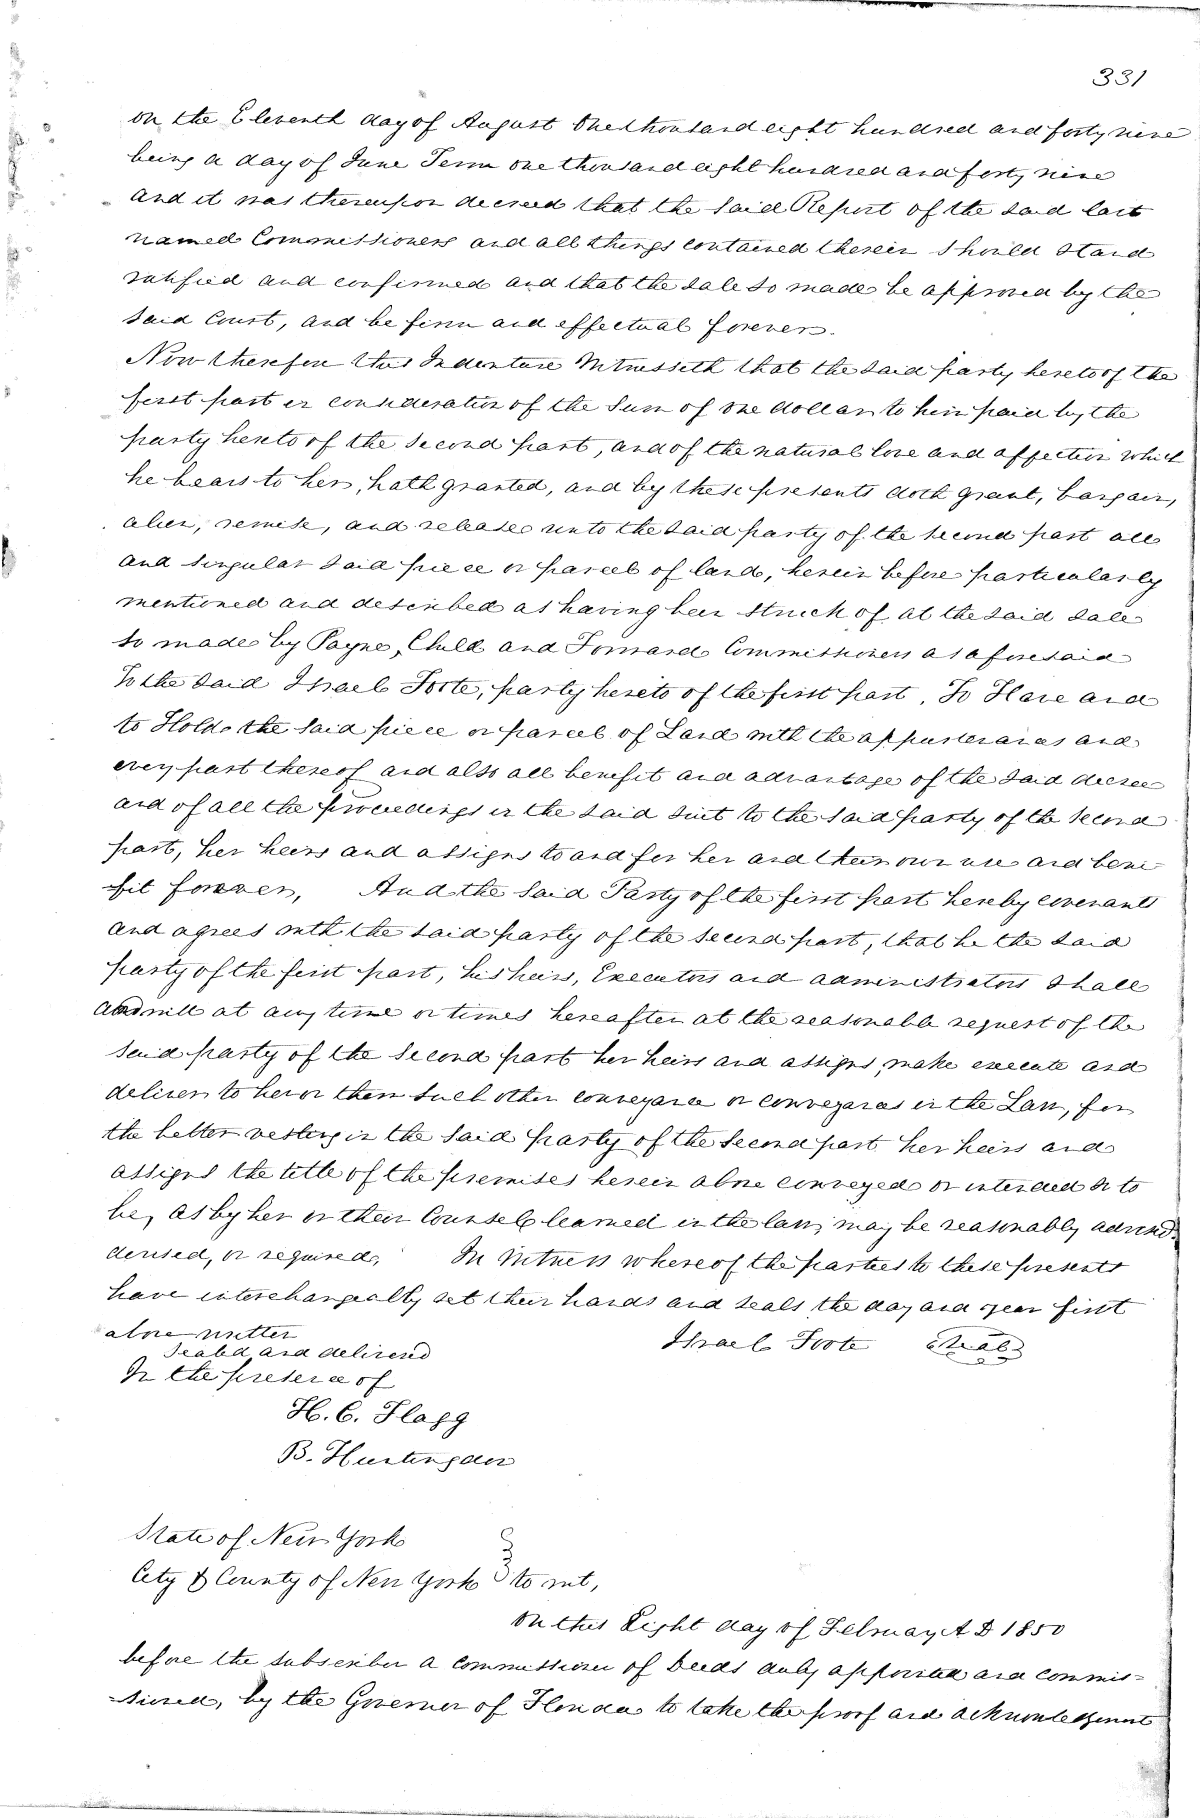 331
on the Eleventh day of August One thousand eight hundred and forty nine
being a day of June Term one thousand eight hundred and forty nine
and it was thereupon decreed that the said Report of the said last
named Commissioners and all things contained therein should stand
ratified and confirmed and that the sale so made be approved by the
said Court, and be firm and effectual forever.
Now therefore this Indenture Witnesseth that the said party hereto of the
first part in consideration of the Sum of one dollar to him paid by the
party hereto of the second part, and of the natural love and affection which
he bears to her, hath granted, and by these presents doth grant, bargain,
alien, remise, and release unto the said party of the second part all
and singular said piece or parcel of land, herein before particularly
mentioned and described as having been struck of at the said sale
so made by Payne, Child and Forward Commissioners as aforesaid
To the said Israel Foote, party hereto of the first part. To Have and
to Hold the said piece or parcel of Land with the appurtenances and
every part thereof and also all benefit and advantage of the said decree
and of all the proceedings in the said suit to the said party of the second
part, her heirs and assigns to and for her and their own use and bene-
fit forever, And the said Party of the first part hereby covenants
and agrees with the said party of the second part, that he the said
party of the first part, his heirs, Executors and administrators shall
and will at any time or times hereafter at the reasonable request of the
said party of the second part her heirs and assigns, make execute and
deliver to her or them such other conveyance or conveyances in the Law, for
the better vesting in the said party of the second part her heirs and
assigns the title of the premises herein above conveyed or intended so to
be, as by her or their Counsel learned in the law, may be reasonably advised
devised, or required. In Witness whereof the parties to these presents
have interchangeably set their hands and seals the day and year first
above written Israel Foote Seal
Sealed and delivered
In the presence of
H. C. Flagg
B. Huntingdon
State of New York
City & County of New York to wit,
On this Eight day of February A D 1850
before the subscriber a commissioner of Deeds duly appointed and commis-
-sioned, by the Governor of Florida to take the proof and acknowledgment